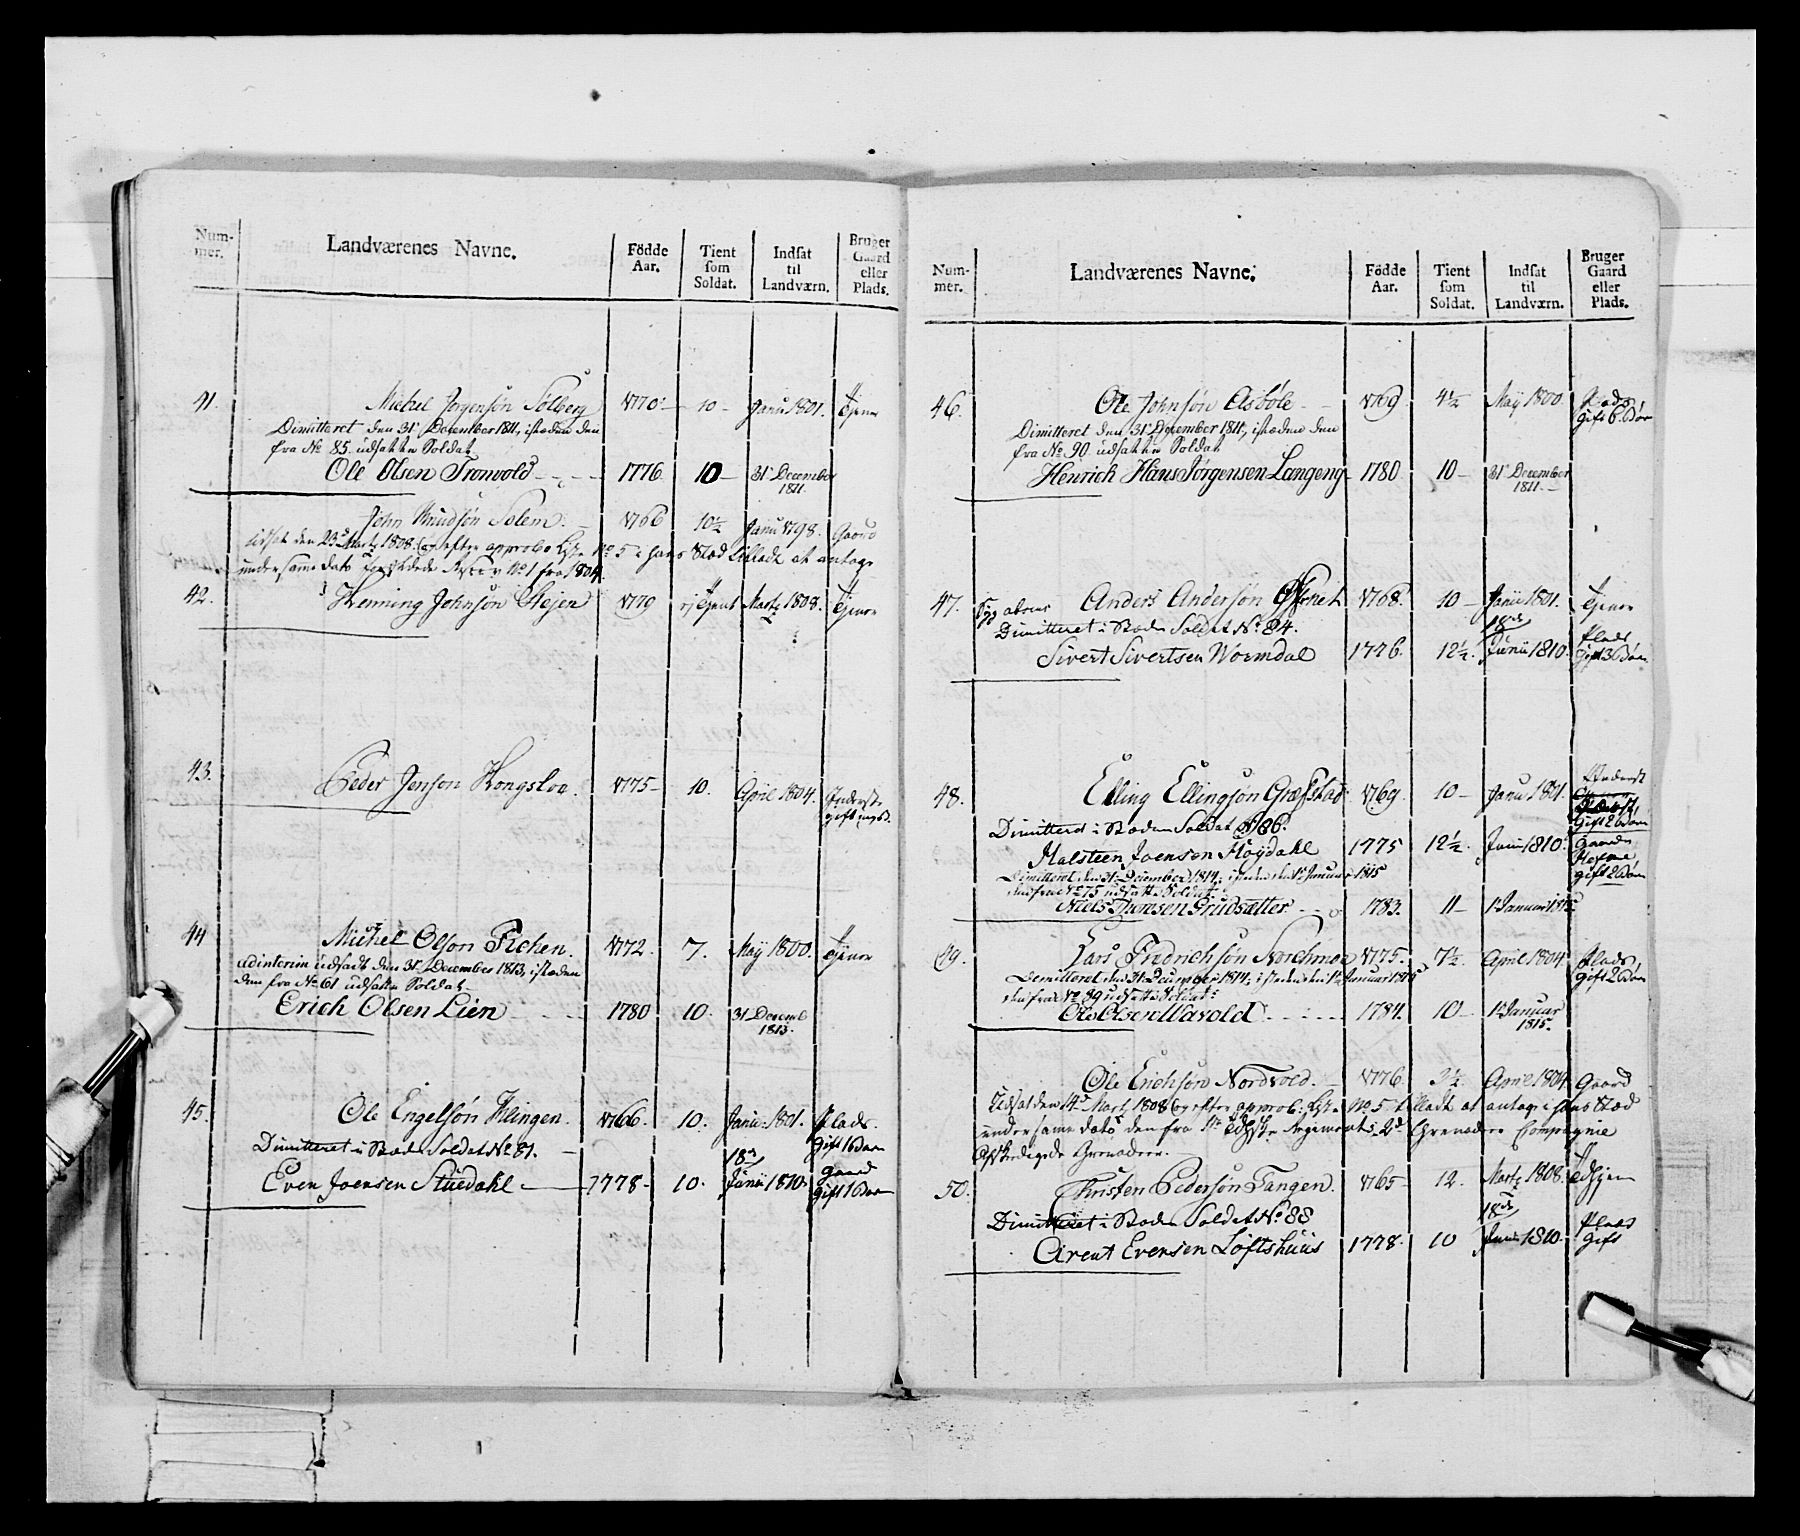 Num-mer. Landværenes Navne. Födde Aar. Tient som Soldat. Indsat til Landværn. Bruger Gaard eller Plads.
41. Michel Jørgensøn Solberg 1770. 10 Janu 1801. Tjener
Dimitteret den 31 December 1811, isteden den
fra No 85 udsatte Soldat
Ole Olsen Tronvold 1776. 10 31 December 1811.
John Knudsøn Solem. 1766 10½ Janu 1798. Gaard
udsat den 23 Martz 1808. og efter approbo Liste No 5 i hans Stæd tilladt at antage
under samme dato No 1 fra 1804.
42. Henning Johnsøn 1779 Martz 1808. Tjener
43. Peder Jenson 1775 10. April 1804. Inderst gift
44 Michel Olson 1772. 7. May 1800. Tjener
adinterim udsadt den 31 December 1813, isteden
den fra No 61 udsatte Soldat
Erich Olsen Lien 1780 10. 31 Decemb 1813.
45. Ole Engelsøn Klingen. 1766. 10. Janu. 1801. Plads. Gift 1 Barn
Dimitteret i Steden Soldat No 81.
Even Joensen Stuedahl 1778 10. 18 Junii 1810. Gaard Gift 1 Barn
Num-mer. Landværenes Navne. Födde Aar. Tient som Soldat. Indsat til Landværn. Bruger Gaard eller Plads.
46. Ole Johnsøn Asbøle 1769 4½ May 1800 Plads gift 6 Bør
Dimitteret den 31 December 1811, isteden den
fra No 90 udsatte Soldat
Henrich Hans Jørgensen Langeng 1780 10 31 December 1811.
47. Anders Anderson 1768. 10 Janu 1801. Tjener
Dimitteret i Steden Soldat No 84.
Sivert Sivertsen Wormdal 1776. 12½ 18 Junii 1810. Plads Gift 3 Børn
48. Elling Ellingsøn Græfstad 1769. 10 Janu 1801. Inderst Gift 2 Børn
Dimitterd i Steden Soldat 86.
Halsteen Joensen Høgdahl 1775 12½. Juni 1810. Gaard gift 2 Børn
Dimitteret den 31 December 1814, isteden den 1 Januar 1815
den fra No 75 udsatte Soldat
Niels Grudsætter 1783. 11 1 Januar 1815
49. Lars Fredrichsøn 1775. 7½ April 1804 Plads Gift 2 Børn
Dimitteret den 31 December 1814, isteden den 1 Januar 1815
den fra No 89 udsatte Soldat
Ole Olsen Wavold 1784. 10 1 Januar 1815.
Ole Erichsøn Nordvold. 1776. April 1804. Gaard
Udsat den 14 Martz 1808 og efter approb: Liste No 5 tilladt at antage i hans Stæd
under samme dato den fra Regiments 2 Grenadeer Compagnie
Grenadeer.
50. Christen Pedersøn Tangen. 1765 12. Martz 1808.
Dimitteret i Steden Soldat No 88
Arent Evensen Loftshuus 1778. 10 18 Junii 1810. Plads Gift